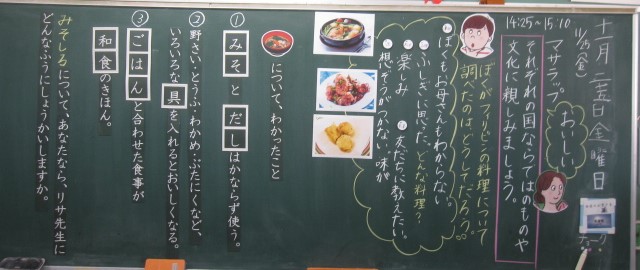 十一月二五日金曜日
11/25(金)
14:25~15:10
マサラップ
おいしい
それぞれの国ならではのものや
文化に親しみましょう。
ぼくがフィリピンの料理について
調べたのは、どうしてだろう。
ぼくもお母さんもわからない。
ふしぎに思った。どんな料理?
楽しみ
友だちに教えたい。
想ぞうがつかない。味が
について、わかったこと
① みそ と だし はかならず使う。
② 野さい・とうふ・わかめ・ぶたにくなど、
いろいろな 具 を入れるとおいしくなる。
③ ごはん と合わせた食事が
和食 のきほん。
みそしるについて、あなたなら、リサ先生に
どんなふうにしょうかいしますか。